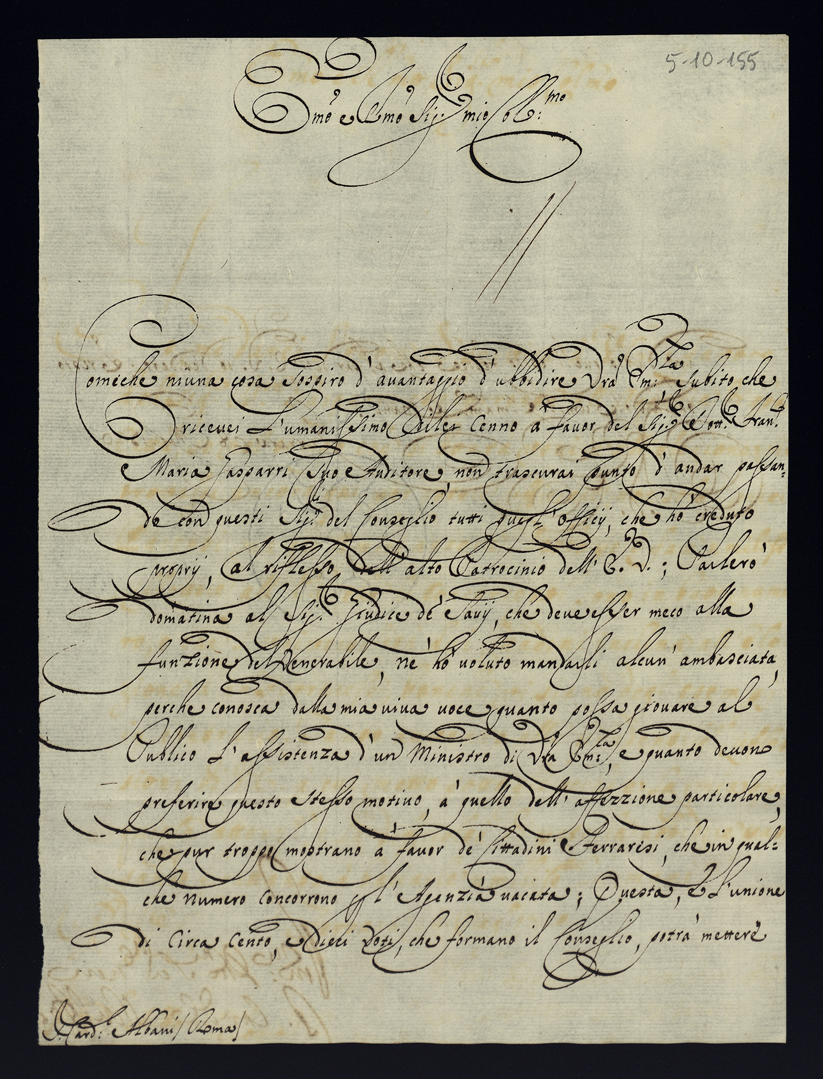 5-10-155
Em̃o e Rm̃o Sig.r mio Col:mo
Comeche niuna cosa sospiro d'avantaggio d'ubbidire Vrã Em:za subito che
ricevei l'umanissimo di lei cenno à favor del Sig.r Dott.r Fran.co
Maria Gasparri Suo Auditore, non trascurai punto d'andar passan-
do con questi Sig.ri del Conseglio tutti quegl'officij, che hò creduto
proprij, al riflesso dell'alto Patrocinio dell'E. V.; Parlerò
domatina al Sig.r Giudice de' Savij, che deve esser meco alla
funzione del Venerabile, ne' hò voluto mandarli alcun' ambasciata,
perche conosca dalla mia viva voce quanto possa giovare al
Publico l'assistenza d'un Ministro di Vrã Em:za, e quanto devono
preferire questo stesso motivo, à quello dell'affezzione particolare,
che pur troppo mostrano à favor de' Cittadini Ferraresi, che in qual-
che numero concorrono all'Agenzia vacata; Questa, è l'unione
di circa cento, e dieci Voti, che formano il Conseglio, potrà mettere
S. Card.l Albani / Roma /